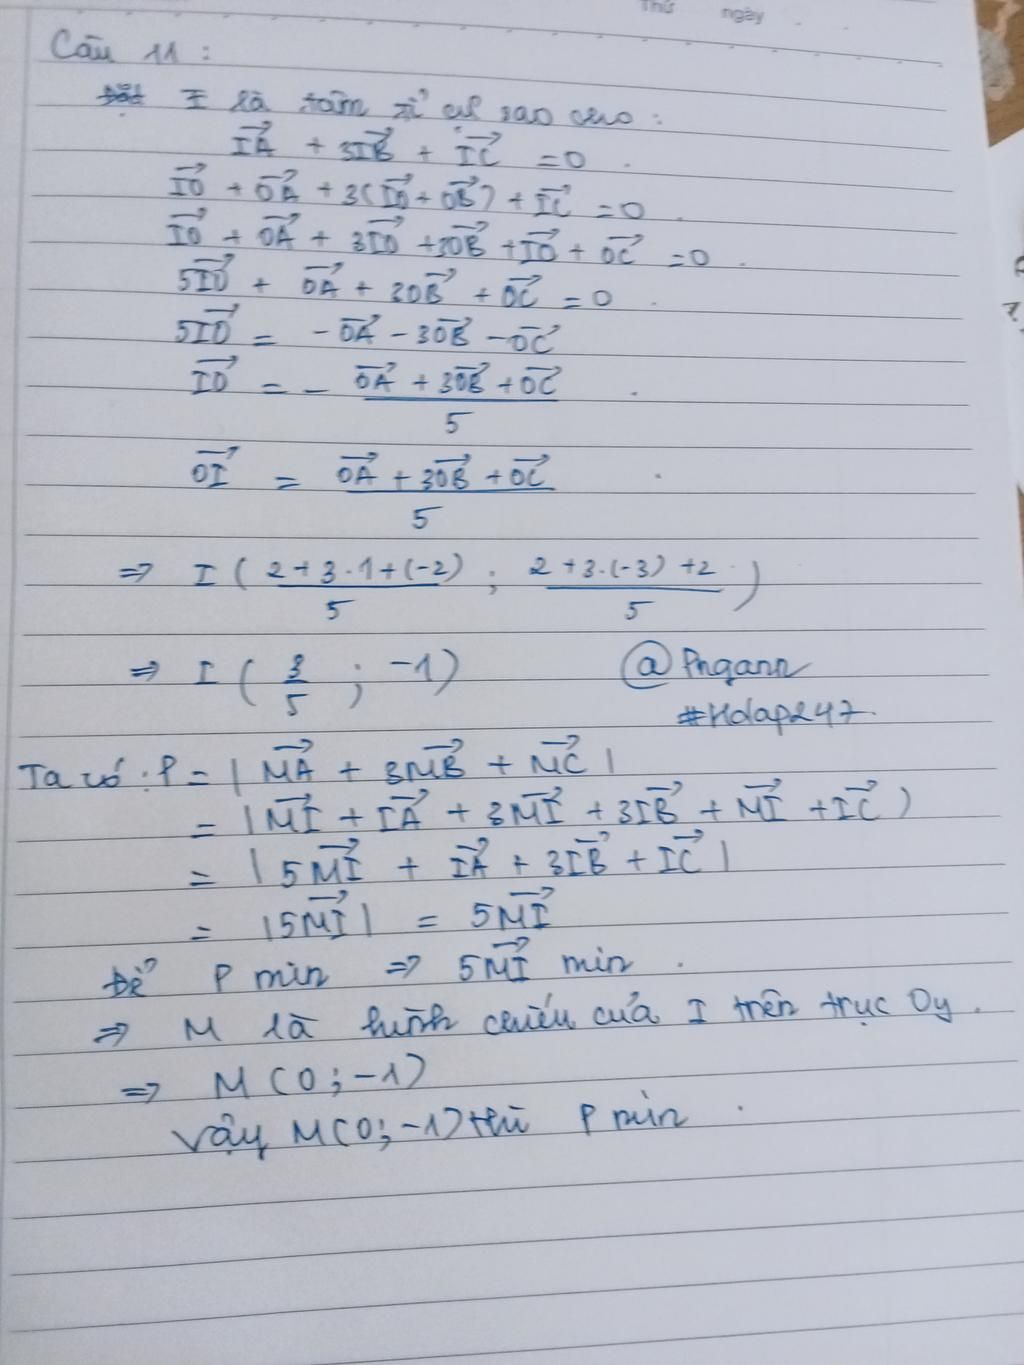 Thứ ngày
Câu 11 :
I là tâm tỉ cự sao cho :
$\overrightarrow{IA} + 3\overrightarrow{IB} + \overrightarrow{IC} = 0$ .
$\overrightarrow{IO} + \overrightarrow{OA} + 3(\overrightarrow{IO} + \overrightarrow{OB}) + \overrightarrow{IC} = 0$ .
$\overrightarrow{IO} + \overrightarrow{OA} + 3\overrightarrow{IO} + 3\overrightarrow{OB} + \overrightarrow{IO} + \overrightarrow{OC} = 0$ .
$5\overrightarrow{IO} + \overrightarrow{OA} + 3\overrightarrow{OB} + \overrightarrow{OC} = 0$ .
$5\overrightarrow{IO} = -\overrightarrow{OA} - 3\overrightarrow{OB} - \overrightarrow{OC}$
$\overrightarrow{IO} = - \frac{\overrightarrow{OA} + 3\overrightarrow{OB} + \overrightarrow{OC}}{5}$ .
$\overrightarrow{OI} = \frac{\overrightarrow{OA} + 3\overrightarrow{OB} + \overrightarrow{OC}}{5}$ .
$\Rightarrow I ( \frac{2+3 \cdot 1+(-2)}{5} ; \frac{2+3 \cdot (-3)+2}{5} )$
$\Rightarrow I ( \frac{3}{5} ; -1 )$ @Pngann
#Hdap247.
Ta có : P = $| \overrightarrow{MA} + 3\overrightarrow{MB} + \overrightarrow{MC} |$
$= | \overrightarrow{MI} + \overrightarrow{IA} + 3\overrightarrow{MI} + 3\overrightarrow{IB} + \overrightarrow{MI} + \overrightarrow{IC} )$
$= | 5\overrightarrow{MI} + \overrightarrow{IA} + 3\overrightarrow{IB} + \overrightarrow{IC} |$
$= | 5\overrightarrow{MI} | = 5\overrightarrow{MI}$
Để P min $\Rightarrow 5\overrightarrow{MI}$ min .
$\Rightarrow$ M là hình chiếu của I trên trục Oy .
$\Rightarrow$ M (0 ; -1)
Vậy M(0; -1) thì P min .